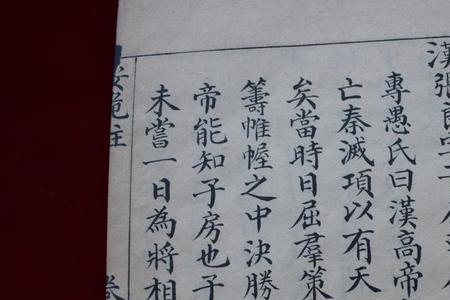 漢張良字子房
專愚氏曰漢高帝
亡秦滅項以有天
矣當時日屈羣策
籌帷幄之中決勝
帝能知子房也子
未嘗一日為將相